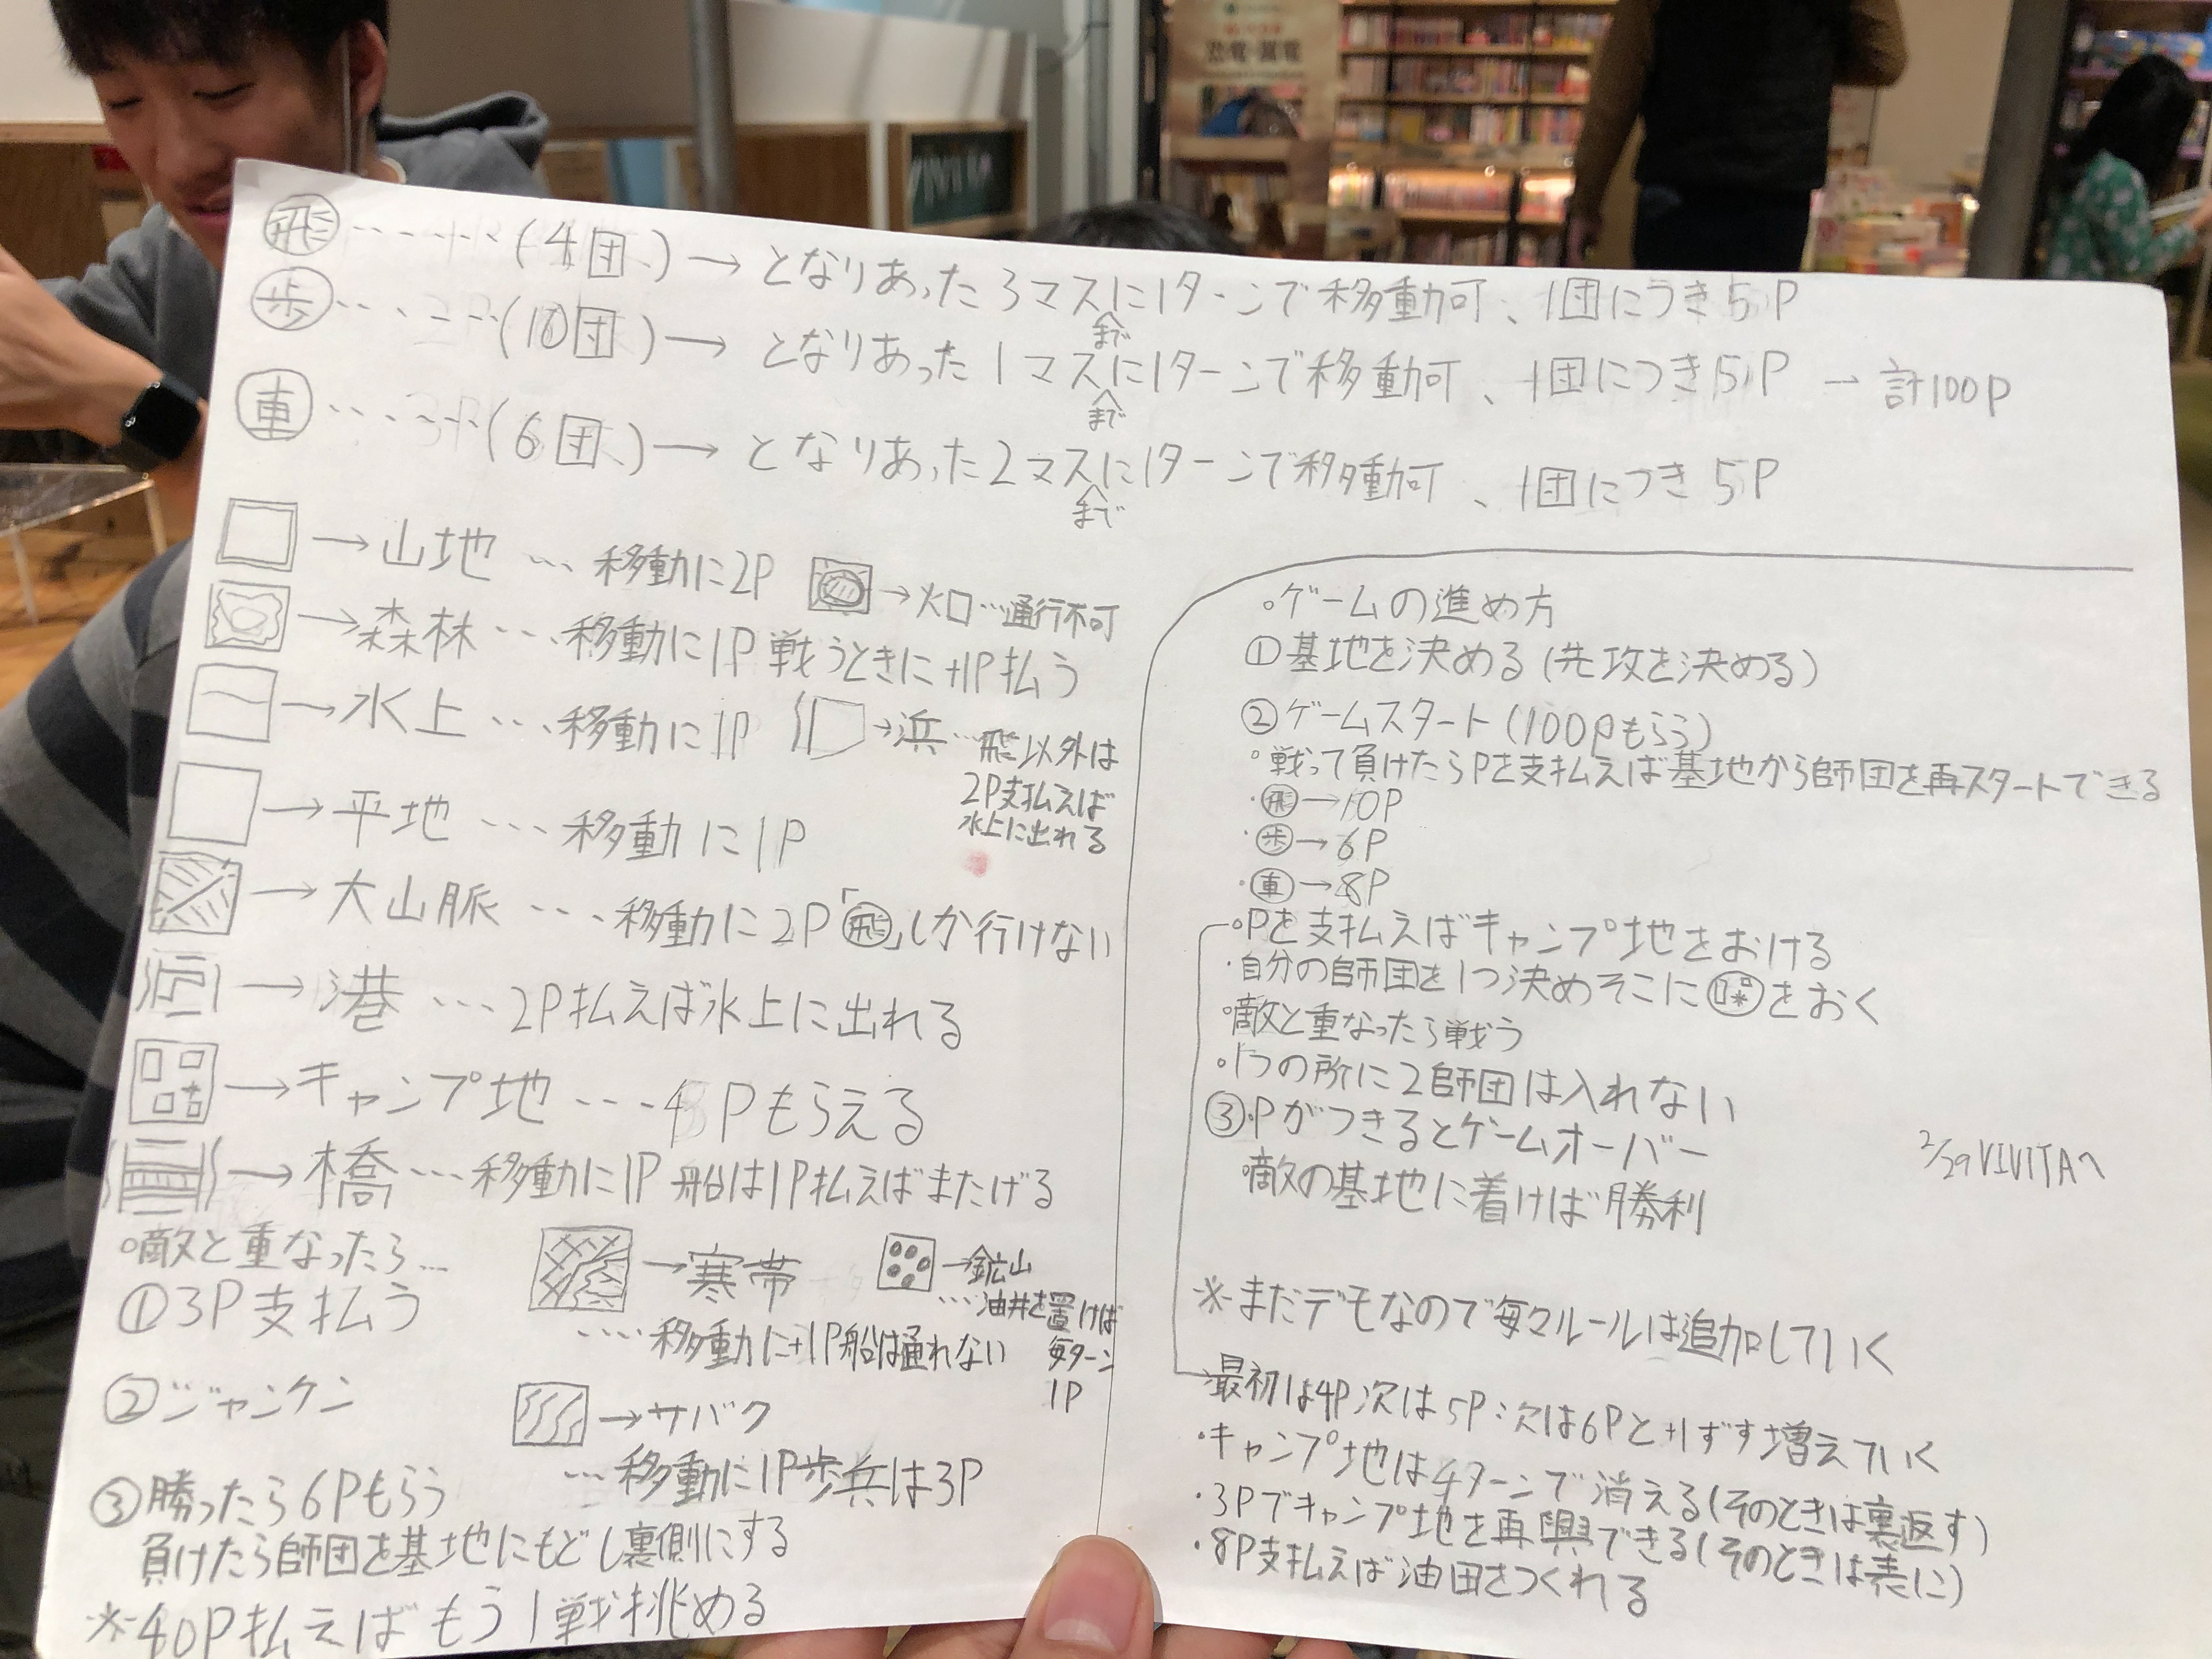 飛 (4団) → となりあった3マスまでに1ターンで移動可、1団につき5P
歩 (10団) → となりあった1マスまでに1ターンで移動可、1団につき5P → 計100P
車 (6団) → となりあった2マスまでに1ターンで移動可、1団につき5P
→山地 … 移動に2P
→火口…通行不可
→森林 … 移動に1P 戦うときに+1P払う
→水上 … 移動に1P
→浜…飛以外は
2P支払えば
水上に出れる
→平地 … 移動に1P
→大山脈 … 移動に2P「飛」しか行けない
→港 … 2P払えば水上に出れる
→キャンプ地 … 4Pもらえる
→橋 … 移動に1P 船は1P払えばまたげる
。敵と重なったら…
①3P支払う
②ジャンケン
③勝ったら6Pもらう
負けたら師団を基地にもどし裏側にする
※40P払えばもう1戦挑める
→寒帯
…移動に+1P船は通れない
→鉱山
…油井を置けば
毎ターン
1P
→サバク
…移動に1P歩兵は3P
。ゲームの進め方
①基地を決める(先攻を決める)
②ゲームスタート(100Pもらう)
。戦って負けたらPを支払えば基地から師団を再スタートできる
・飛→10P
・歩→6P
・車→8P
。Pを支払えばキャンプ地をおける
・自分の師団を1つ決めそこに をおく
。敵と重なったら戦う
。1つの所に2師団は入れない
③・Pがつきるとゲームオーバー
。敵の基地に着けば勝利
2/29VIVITAへ
※まだデモなので毎々ルールは追加していく
→最初は4P次は5P次は6Pと+1ずす増えていく
・キャンプ地は4ターンで消える(そのときは裏返す)
・3Pでキャンプ地を再興できる(そのときは表に)
・8P支払えば油田をつくれる